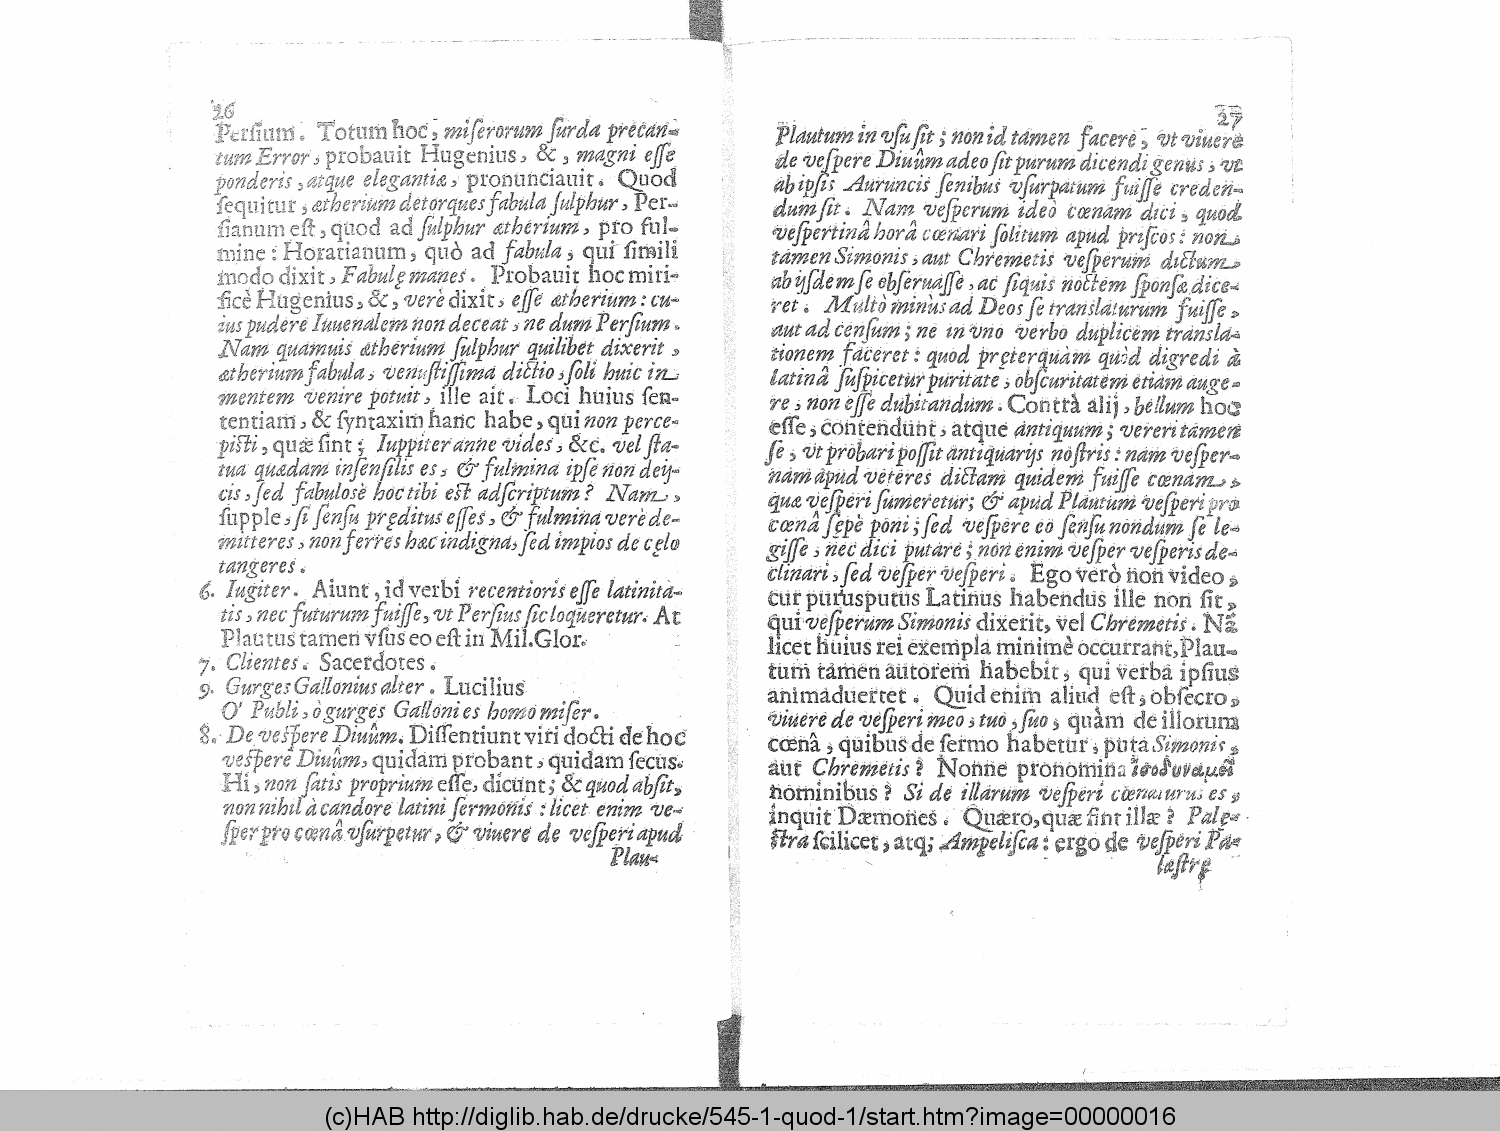 26
Perſium. Totum hoc, miſerorum ſurda precan-
tum Error, probauit Hugenius, &, magni eſſe
ponderis, atque elegantiæ, pronunciauit. Quod
ſequitur, ætherium detorques fabula ſulphur, Per-
ſianum eſt, quod ad ſulphur ætherium, pro ful-
mine: Horatianum, quò ad fabula, qui ſimili
modo dixit, Fabulę manes. Probauit hoc miri-
ficè Hugenius, &, verè dixit, eſſe ætherium: cu-
ius pudere Iuuenalem non deceat, ne dum Perſium.
Nam quamuis ætherium ſulphur quilibet dixerit,
ætherium fabula, venuſtiſſima dictio, ſoli huic in
mentem venire potuit, ille ait. Loci huius ſen-
tentiam, & ſyntaxim hanc habe, qui non perce-
piſti, quæ ſint; Iuppiter anne vides, &c. vel ſta-
tua quædam inſenſilis es, & fulmina ipſe non deij-
cis, ſed fabulosè hoc tibi eſt adſcriptum? Nam,
ſupple, ſi ſenſu pręditus eſſes, & fulmina verè de-
mitteres, non ferres hæc indigna, ſed impios de cęlo
tangeres.
6. Iugiter. Aiunt, id verbi recentioris eſſe latinita-
tis, nec futurum fuiſſe, vt Perſius ſic loqueretur. At
Plautus tamen vſus eo eſt in Mil. Glor.
7. Clientes. Sacerdotes.
9. Gurges Gallonius alter. Lucilius
O' Publi, ò gurges Galloni es homo miſer.
8. De veſpere Diuûm. Diſſentiunt viri docti de hoc
veſpere Diuûm, quidam probant, quidam ſecus.
Hi, non ſatis proprium eſſe, dicunt; & quod abſit,
non nihil à candore latini ſermonis: licet enim ve-
ſper pro cœnâ vſurpetur, & viuere de veſperi apud
Plau-
27
Plautum in vſu ſit; non id tamen facere, vt viuere
de veſpere Diuûm adeo ſit purum dicendi genus, vt
ab ipſis Auruncis ſenibus vſurpatum fuiſſe creden-
dum ſit. Nam veſperum ideò cœnam dici, quod
veſpertinâ horâ cœnari ſolitum apud priſcos: non
tamen Simonis, aut Chremetis veſperum dictum
ab ijſdem ſe obſeruaſſe, ac ſiquis noctem ſponſæ dice-
ret. Multò minùs ad Deos ſe translaturum fuiſſe,
aut ad cenſum; ne in vno verbo duplicem transla-
tionem faceret: quod pręterquàm quòd digredi à
latinâ ſuſpicetur puritate, obſcuritatem etiam auge-
re, non eſſe dubitandum. Contrà alij, bellum hoc
eſſe, contendunt, atque antiquum; vereri tamen
ſe, vt probari poſſit antiquarijs noſtris: nam veſper-
nam apud veteres dictam quidem fuiſſe cœnam,
quæ veſperi ſumeretur; & apud Plautum veſperi pro
cœnâ ſępè poni; ſed veſpere eo ſenſu nondum ſe le-
giſſe, nec dici putare; non enim veſper veſperis de-
clinari, ſed veſper veſperi. Ego verò non video,
cur purusputus Latinus habendus ille non ſit,
qui veſperum Simonis dixerit, vel Chremetis. Nã
licet huius rei exempla minimè occurrant, Plau-
tum tamen autorem habebit, qui verba ipſius
animaduertet. Quid enim aliud eſt, obſecro,
viuere de veſperi meo, tuo, ſuo, quàm de illorum
cœnâ, quibus de ſermo habetur, puta Simonis,
aut Chremetis? Nonne pronomina ἰσοδυναμεῖ
nominibus? Si de illarum veſperi cœnaturus es,
inquit Dæmones. Quæro, quæ ſint illæ? Palę-
ſtra ſcilicet, atq; Ampeliſca: ergo de veſperi Pa-
læſtrę
(c)HAB http://diglib.hab.de/drucke/545-1-quod-1/start.htm?image=00000016